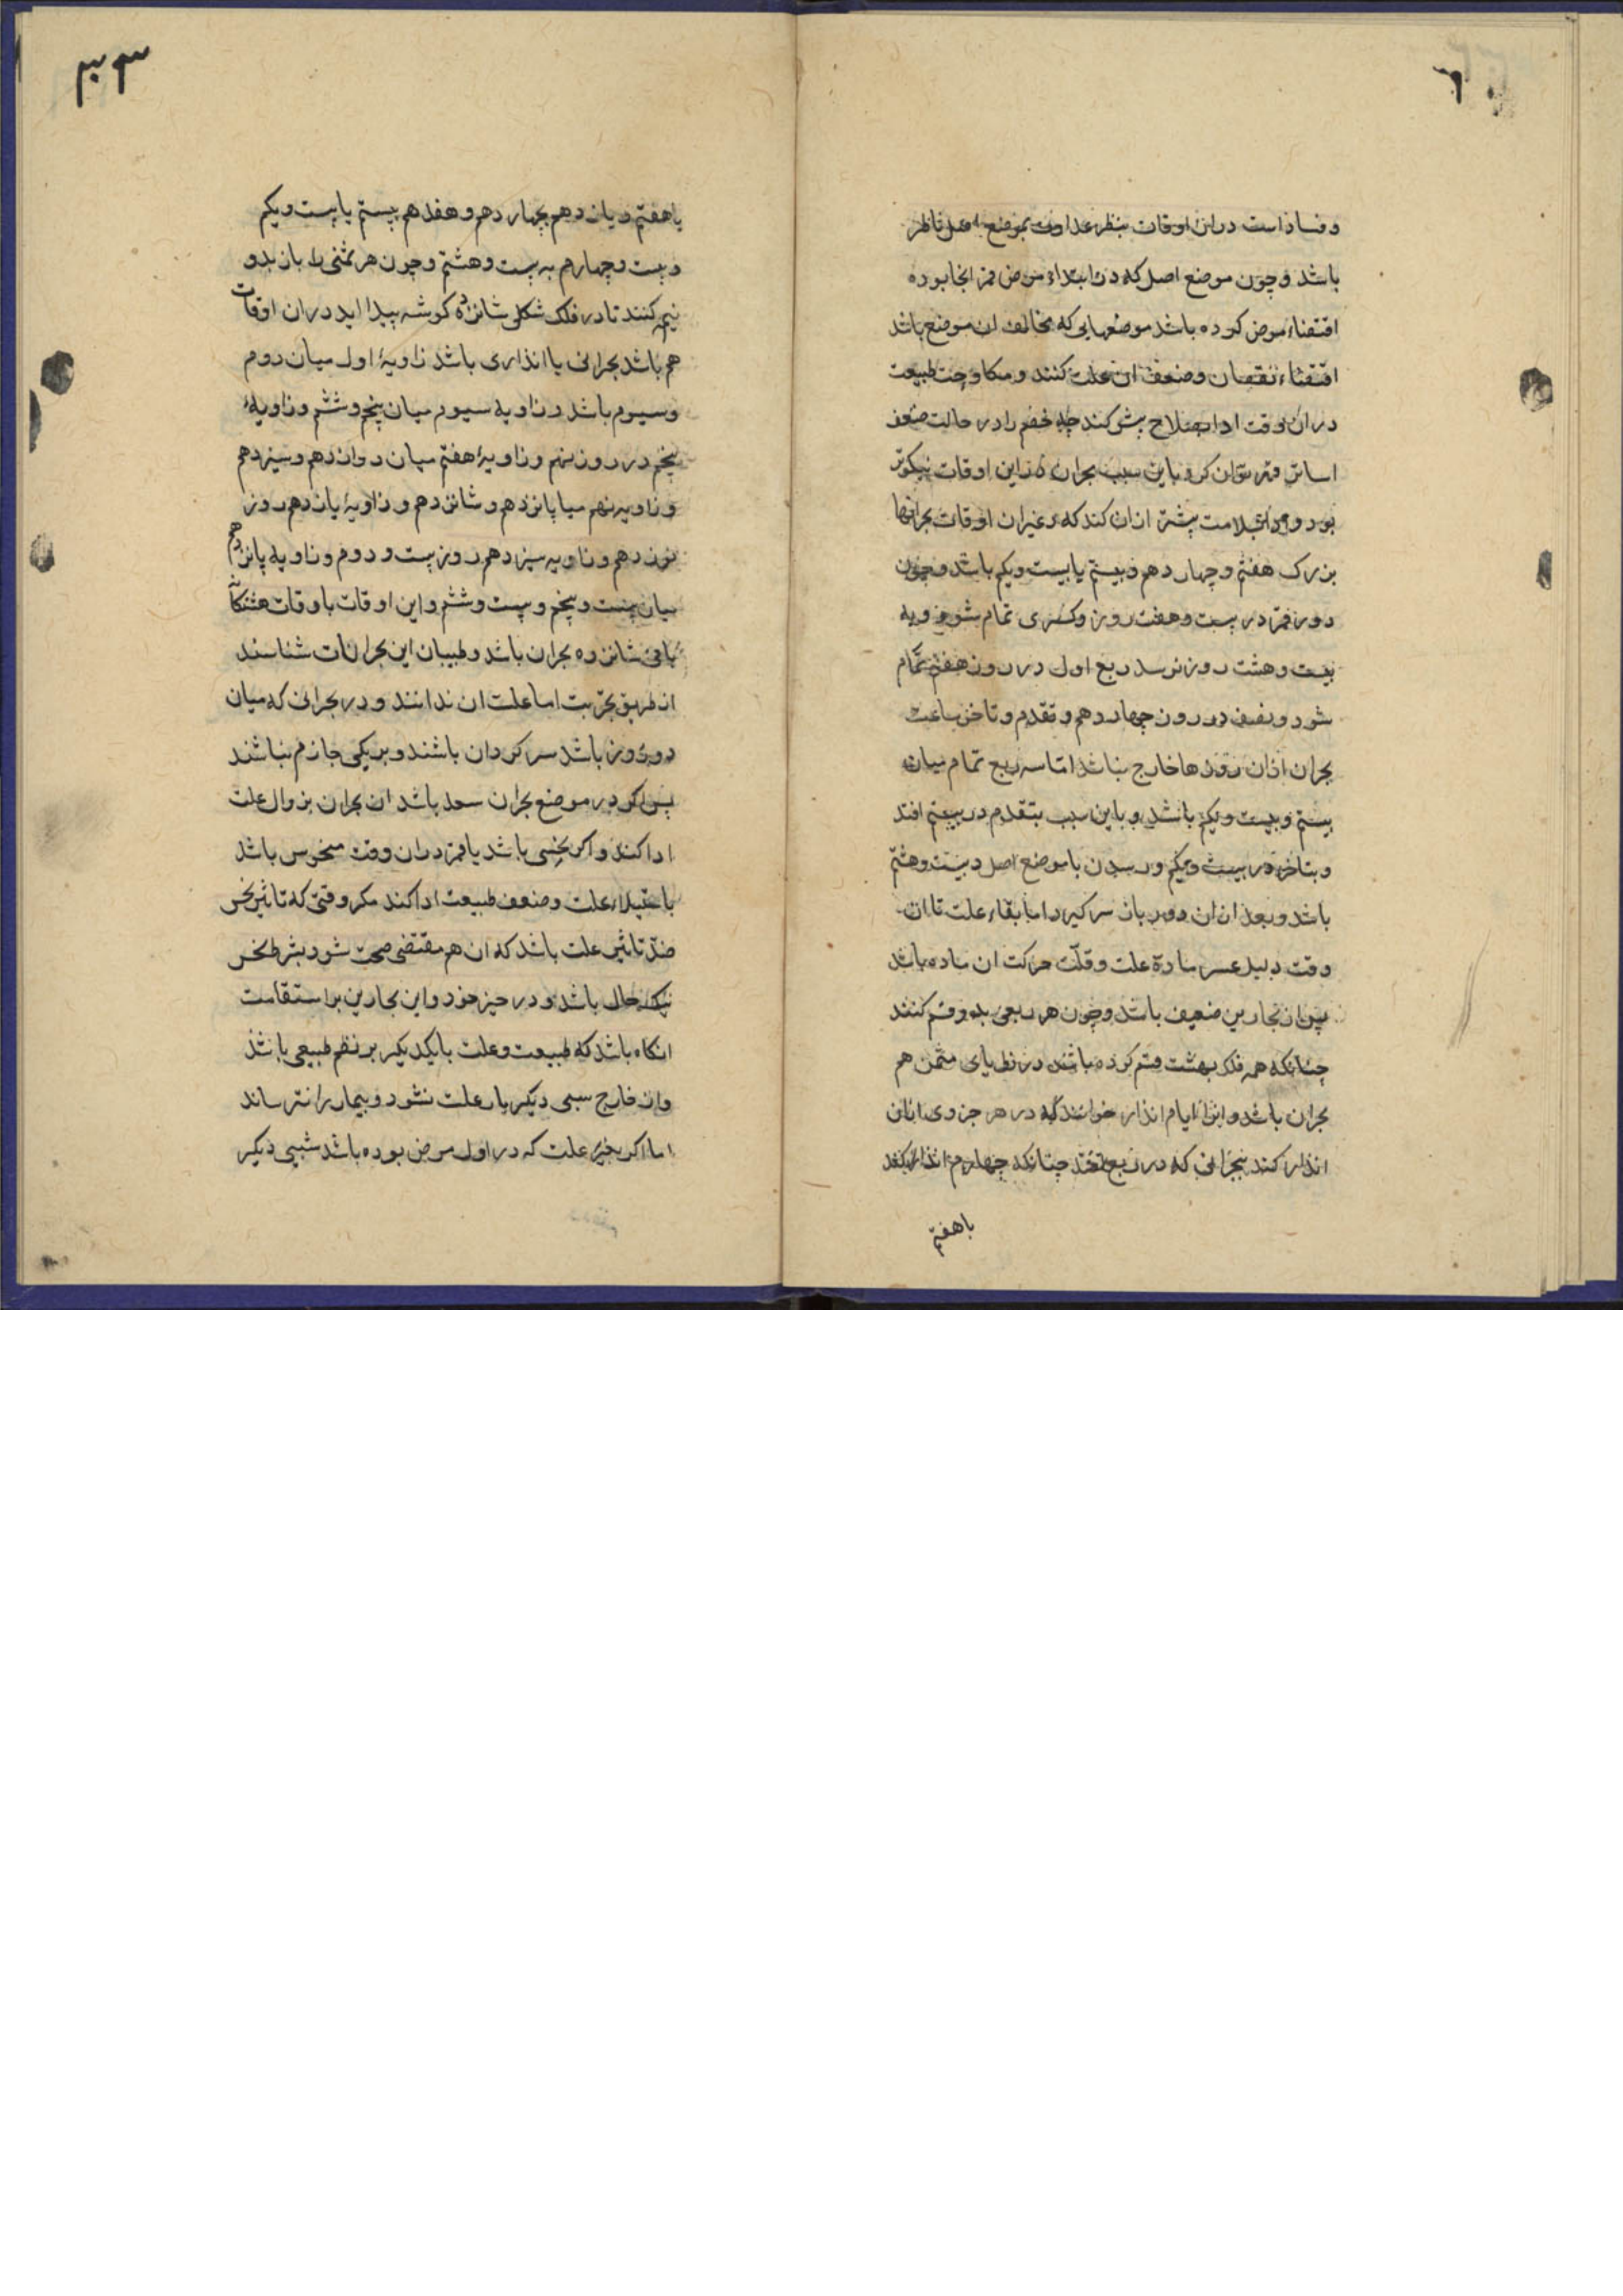 ٦٠
و فساد است در این اوقات بنظر عداوت بموضع اصل ناظر
باشد و چون موضع اصل که در ابتداء مرض قمر انجا بوده
اقتضاء مرض کرده باشد موضعهایی که مخالف ان موضع باشد
اقتضاء نقصان و ضعف ان علت کنند و مکاوحت طبیعت
در ان وقت او را بصلاح پیش کند چه خصم را در حالت ضعف
اسانتر قهر توان کرد باین سبب بحران در این اوقات نیکوتر
بود و بسلامت بیشتر از ان کند که در غیر ان اوقات بحرانها
بزرک هفتم و چهاردهم و بیستم یا بیست ویکم باشد و چون
دور قمر در بیست و هفت روز و کسری تمام شود و به
بیست و هشت روز نرسد ربع اول در روز هفتم تمام
شود و نصف در روز چهاردهم و تقدم و تاخر ساعت
بحران از ان روزها خارج نباشد اما سه ربع تمام میان
بیستم و بیست ویکم باشد و باین سبب بتقدم در بیستم افتد
و بتاخر در بیست ویکم و رسیدن با موضع اصل در بیست و هشتم
باشد و بعد از ان دور باز سر گیرد اما بقاء علت تا ان
وقت دلیل عسر مادۀ علت و قلّت حرکت ان ماده باشد
پس ان بحارین ضعیف باشد و چون هر ربعی بدو قسم کنند
چنانکه همه فلک بهشت قسم کرده باشند در زوایای مثمن هم
بحران باشد و انرا ایام انذار خوانند که در هر جزوی از ان
انذار کند ببحرانی که در ربع افتد چنانکه چهارم انذار کند
با هفتم
یا هفتم و یازدهم بچهاردهم و هفدهم ببیستم یا بیست ویکم
و بیست و چهارم به بیست و هشتم و چون هر ثمنی را باز بدو
نیم کنند تا در فلک شکلی شانزده کوشه پیدا اید در ان اوقات
هم باشد بحرانی یا انذاری باشد زاویۀ اول میان دوم
و سیوم باشد و زاویه سیوم میان پنجم و ششم و زاویۀ
پنجم در روز نهم و زاویۀ هفتم میان دوازدهم و سیزدهم
و زاویه نهم میا پانزدهم و شانزدهم و زاویۀ یازدهم روز
نوزدهم و زاویه سیزدهم روز بیست و دوم و زاویه پانزدهم
میان بیست و پنجم و بیست و ششم و این اوقات با اوقات هشتکانه
باقی شانزده بحران باشد و طبیبان این بحرانات شناسند
از طریق تجربت اما علت ان ندانند و در بحرانی که میان
دو روز باشد سر کردان باشند و بر یکی جازم نباشند
پس اکر در موضع بحران سعد باشد ان بحران بزوال علت
ادا کند و اکر نحسی باشد یا قمر در ان وقت منحوس باشد
باستیلاء علت و ضعف طبیعت ادا کند مکر وقتی که تاثیر نحس
ضدّ تاثیر علت باشد که ان هم مقتضی صحت شود بشرط نحس
نیک حال باشد و در حیز خود و این بحارین بر استقامت
انکاه باشد که طبیعت و علت بایکدیکر بر نظم طبیعی باشد
و از خارج سببی دیکر یار علت نشود و بیمار را نترساند
اما اکر بجز علت که در اول مرض بوده باشد سببی دیکر